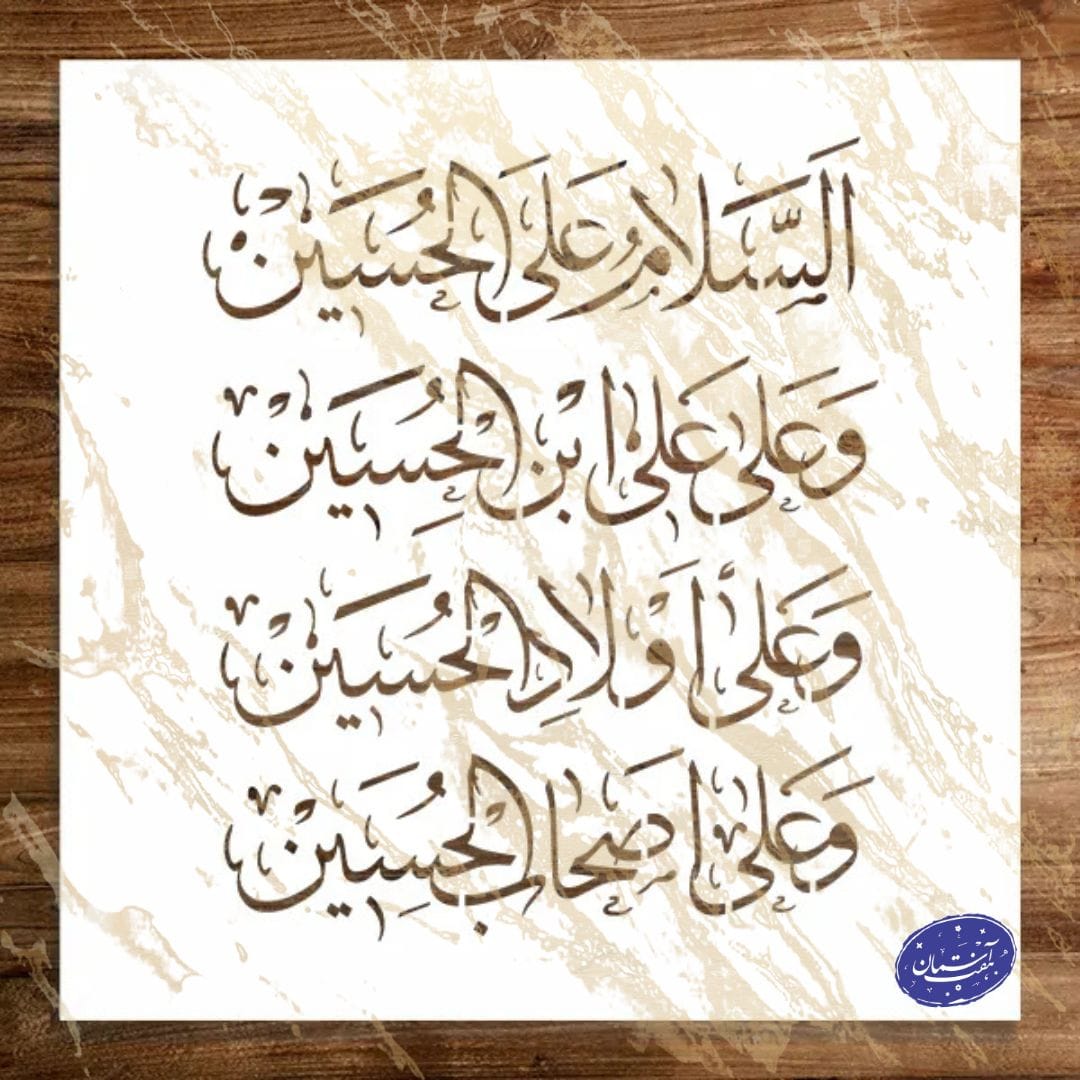 اَلسَّلامُ عَلَى الحُسَینْ
وَعَلى عَلى ابْنِ الحُسِینْ
وَعَلى أَوْلادِ الحُسَینْ
وَعَلى اَصحابِ الحُسِینْ
هفت آسمان